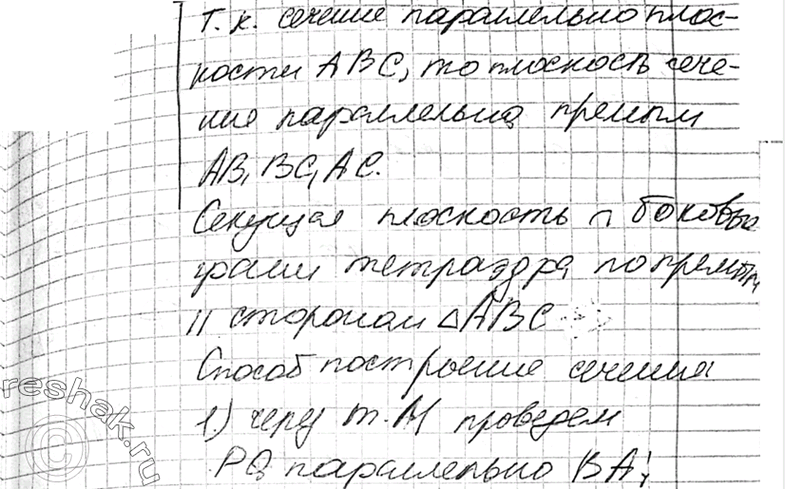 Т.к. сечение параллельно плос-
кости ABC, то плоскость сече-
ние параллельна прямым
AB, BC, AC.
Секущая плоскость ∩ боковые
грани тетраэдра по прямым,
|| сторонам △ABC
Способ построение сечения
1) через т. M проведем
PQ параллельно BA;
reshak.ru